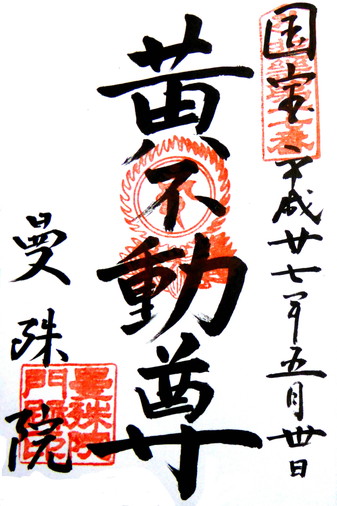 国宝
平成廿七年五月卅日
黄不動尊
曼殊院
曼殊院
門跡印